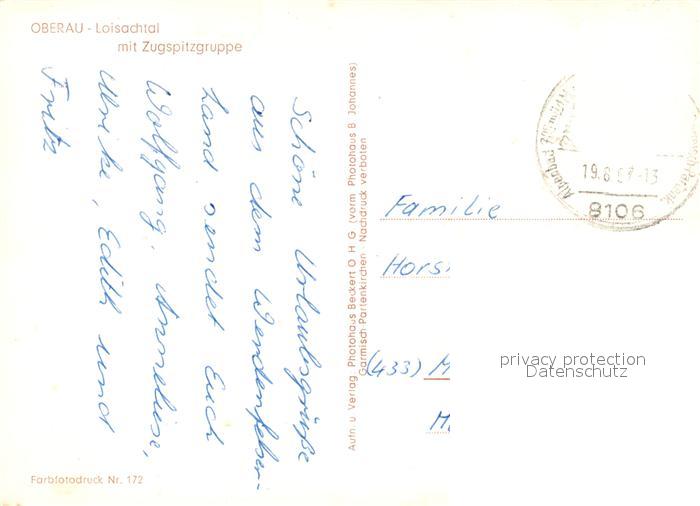 OBERAU - Loisachtal
mit Zugspitzgruppe
Schöne Urlaubsgrüße
aus dem Werdenfelser-
Land sendet Euch
Wolfgang, Anneliese,
Ulrike, Edith und
Fritz
Farbfotodruck Nr. 172
Aufn. u. Verlag Photohaus Beckert O H G (vorm Photohaus B Johannes)
Garmisch-Partenkirchen - Nachdruck verboten
19.8. -13
8106
Familie
Hors
(433) M
M
privacy protection
Datenschutz